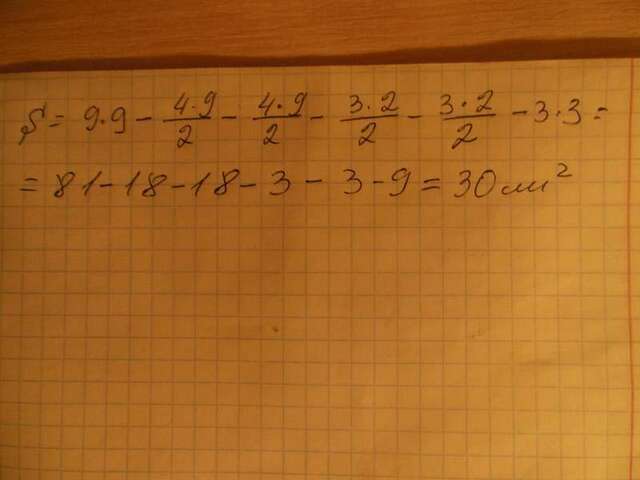 S = 9·9 - \frac{4·9}{2} - \frac{4·9}{2} - \frac{3·2}{2} - \frac{3·2}{2} - 3·3 =
= 81 - 18 - 18 - 3 - 3 - 9 = 30 см²